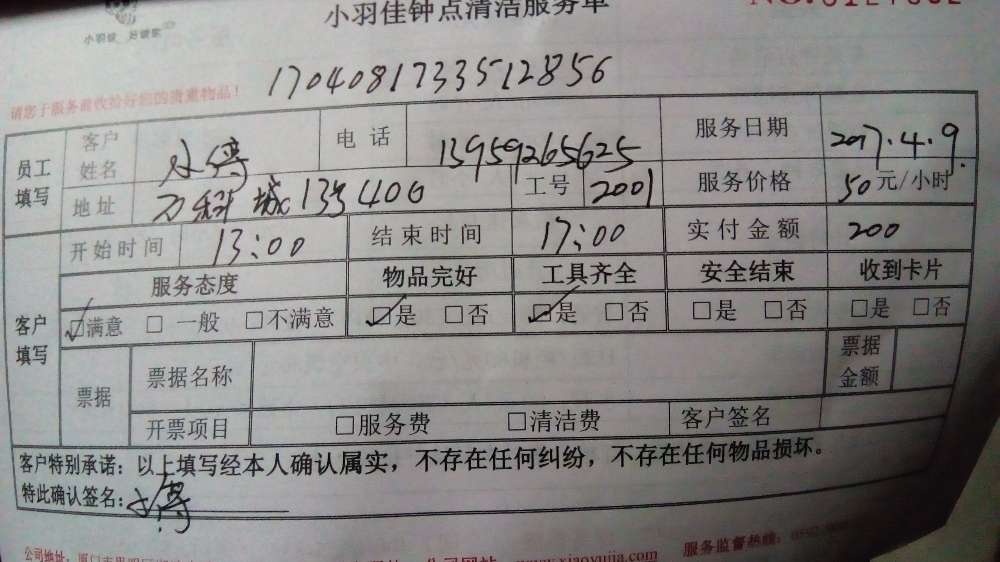 小羽佳钟点清洁服务单
小羽佳 好管家
请您于服务前收拾好您的贵重物品!
1704081733512856
员工填写 客户姓名 小傅 电话 13959265625 服务日期 2017.4.9.
地址 万科城13号400 工号 2001 服务价格 50元/小时
开始时间 13:00 结束时间 17:00 实付金额 200
客户填写 服务态度 物品完好 工具齐全 安全结束 收到卡片
☑满意 □一般 □不满意 ☑是 □否 ☑是 □否 □是 □否 □是 □否
票据 票据名称 票据金额
开票项目 □服务费 □清洁费 客户签名
客户特别承诺:以上填写经本人确认属实,不存在任何纠纷,不存在任何物品损坏。
特此确认签名:小傅
公司地址: 公司网站: www.xiaoyujia.com 服务监督热线: